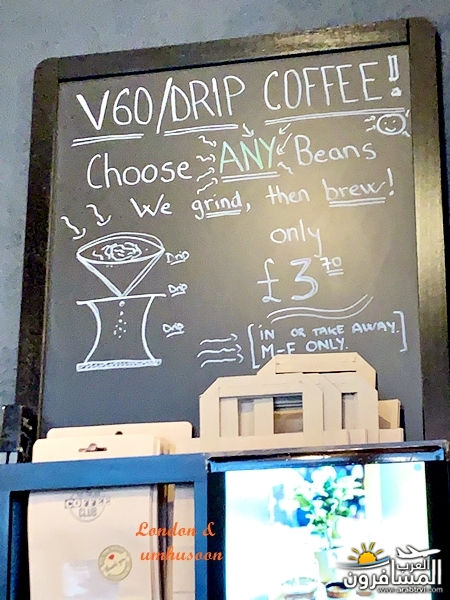 V60/DRIP COFFEE!
Choose ANY Beans
We grind, then brew!
only
£3 70
Drip
Drip
Drip
[IN OR TAKE AWAY.
M-F ONLY.]
COFFEE
CLUB
London &
umhusoon
العرب
المسافرون
www.arabtrvl.com